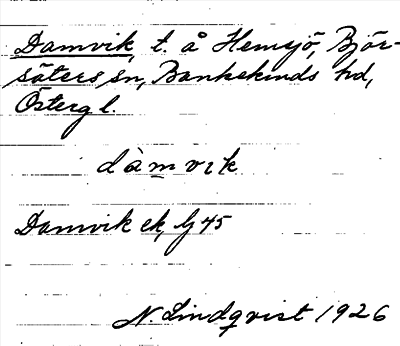 Damvik, t. å Hemsjö, Björ-
säters sn, Bankekinds hd,
Östergl.
dàmvik
Damvik ek, bj 45
N. Lindqvist 1926